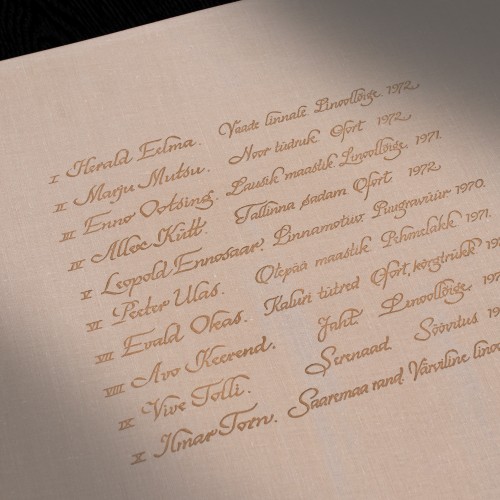 I Herald Eelma. Vaade linnale Linoollõige. 1972
II Marju Mutsu. Noor tüdruk Ofort 1972
III Enno Ootsing. Lausik maastik. Linoollõige. 1971.
IV Allex Kütt. Tallinna sadam Ofort 1972
V Leopold Ennosaar. Linnamotiiv. Puugravüür. 1970.
VI Peeter Ulas. Otepää maastik Pehmelakk 1971.
VII Evald Okas. Kaluri tütred Ofort, kõrgtrükk
VIII Avo Keerend. Jaht. Linoollõige
IX Vive Tolli. Serenaad. Söövitus
X Ilmar Torn. Saaremaa rand. Värviline